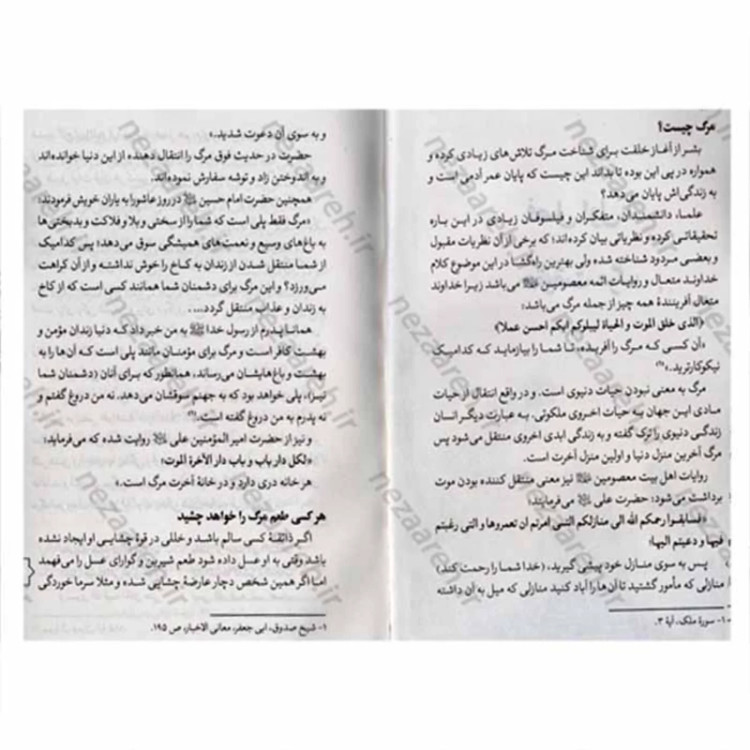 مرگ چیست؟
بشر از آغاز خلقت برای شناخت مرگ تلاش‌های زیادی کرده و
همواره در پی این بوده تا بداند این چیست که پایان عمر آدمی است و
به زندگی‌اش پایان می‌دهد؟
علما، دانشمندان، متفکران و فیلسوفان زیادی در این باره
تحقیقاتی کرده و نظریاتی بیان کرده‌اند؛ که برخی از آن نظریات مقبول
و بعضی مردود شناخته شده ولی بهترین راه‌گشا در این موضوع کلام
خداوند متعال و روایات ائمه معصومین می‌باشد زیرا خداوند
متعال آفرینندهٔ همه چیز از جمله مرگ می‌باشد:
«الذی خلق الموت و الحیاة لیبلوکم ایکم احسن عملا»
«آن کسی که مرگ را آفریده، تا شما را بیازماید که کدامیک
نیکوکارترید..»(۱)
مرگ به معنی نبودن حیات دنیوی است. و در واقع انتقال از حیات
مادی این جهان به حیات اخروی ملکوتی، به عبارت دیگر انسان
زندگی دنیوی را ترک گفته و به زندگی ابدی اخروی منتقل می‌شود پس
مرگ آخرین منزل دنیا و اولین منزل آخرت است.
روایات اهل بیت معصومین نیز معنی منتقل کننده بودن موت
برداشت می‌شود؛ حضرت علی می‌فرمایند:
«فسابقوا رحمکم الله الی منازلکم التی امرتم ان تعمروها و التی رغبتم
فیها و دعیتم الیها؛
پس به سوی منازل خود پیشی گیرید، (خدا شما را رحمت کند)
منازلی که مأمور گشتید تا آن‌ها را آباد کنید منازلی که میل به آن داشته
۱- سورهٔ ملک، آیهٔ ۲.
و به سوی آن دعوت شدید.»
حضرت در حدیث فوق مرگ را انتقال دهنده از این دنیا خوانده‌اند
و به اندوختن زاد و توشه سفارش نموده‌اند.
همچنین حضرت امام حسین در روز عاشورا به یاران خویش فرمودند:
«مرگ فقط پلی است که شما را از سختی و بلا و فلاکت و بدبختی‌ها
به باغ‌های وسیع و نعمت‌های همیشگی سوق می‌دهد؛ پس کدامیک
از شما منتقل شدن از زندان به کاخ را خوش نداشته و از آن کراهت
می‌ورزد؟ و این مرگ برای دشمنان شما همانند کسی است که از کاخ
به زندان و عذاب منتقل گردد....
همانا پدرم از رسول خدا به من خبر داد که دنیا زندان مؤمن و
بهشت کافر است و مرگ برای مؤمنان مانند پلی است که آن‌ها را به
بهشت و باغ‌هایشان می‌رساند، همانطور که برای آنان (دشمنان شما
نیز)، پلی خواهد بود که به جهنم سوقشان می‌دهد. نه من دروغ گفتم و
نه پدرم به من دروغ گفته است.»(۱)
و نیز از حضرت امیر المؤمنین علی روایت شده که می‌فرماید:
«لکل دار باب و باب دار الآخرة الموت؛
هر خانه دری دارد و در خانهٔ آخرت مرگ است.»
هر کسی طعم مرگ را خواهد چشید
اگر ذائقهٔ کسی سالم باشد و خللی در قوهٔ چشایی او ایجاد نشده
باشد وقتی به او عسل داده شود طعم شیرین و گوارای عسل را می‌فهمد
اما اگر همین شخص دچار عارضهٔ چشایی شده و مثلا سرما خوردگی
۱- شیخ صدوق، ابی جعفر، معانی الاخبار، ص ۱۹۵.
nezaareh.ir